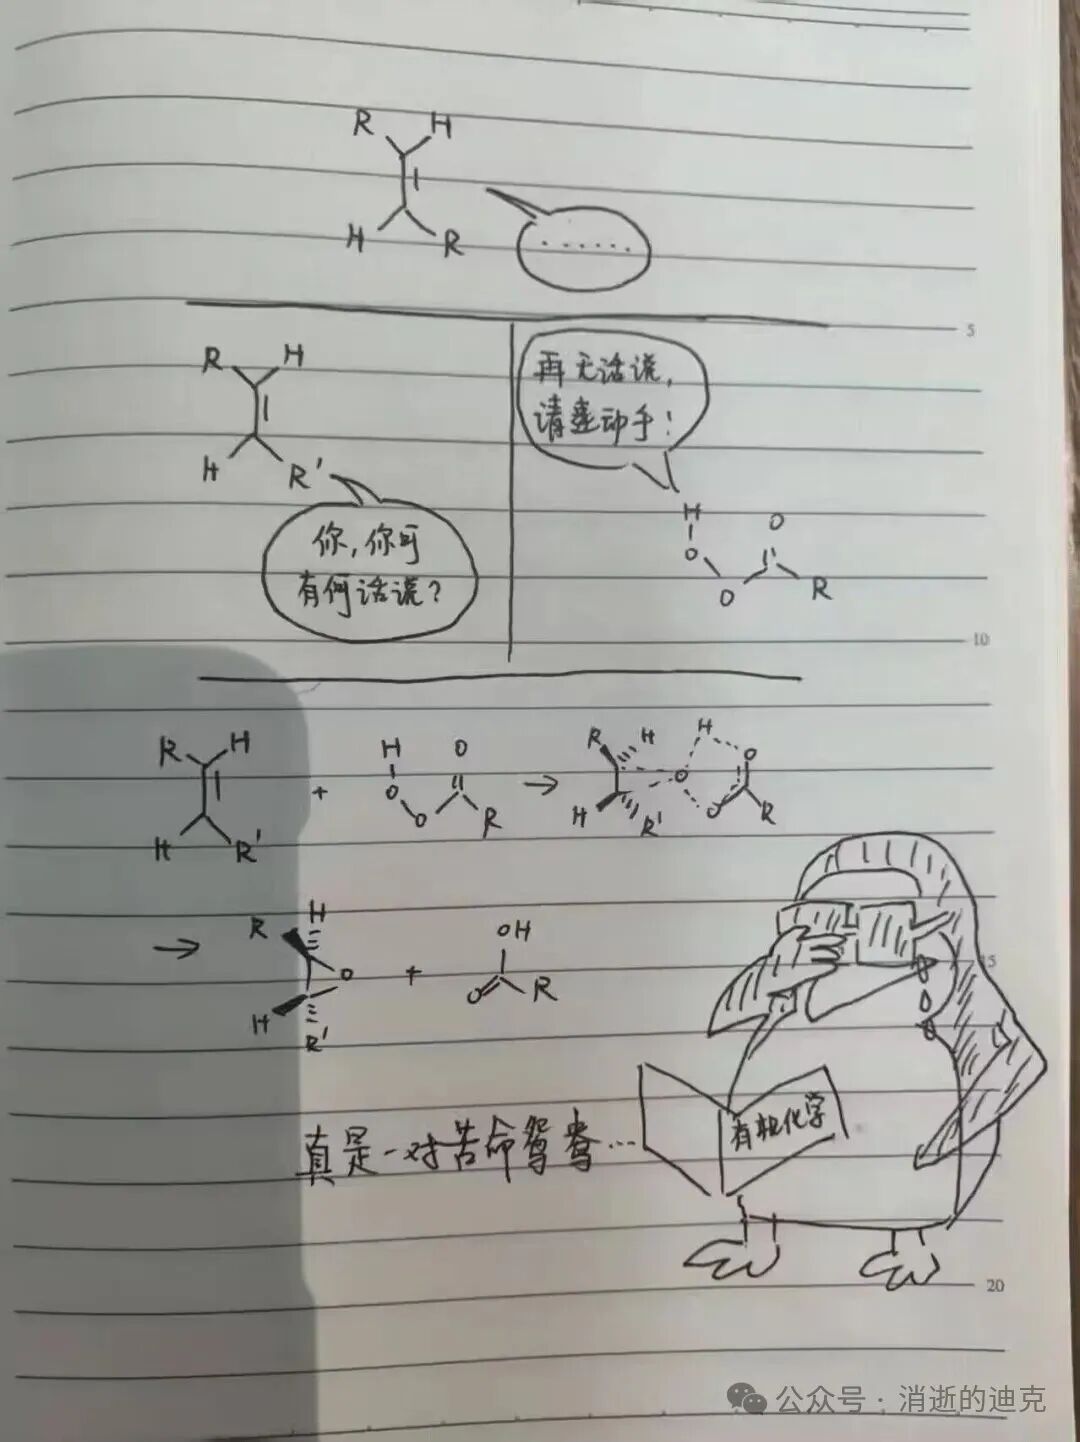 R H
H R
......
R H
H R'
你,你可
有何话说?
再无话说,
请速动手!
H O
O O R
R H H O R H H O
+ O O → O
H R' R H R' O R
→ R H OH
O +
H R' O R
真是一对苦命鸳鸯...
有机化学
公众号·消逝的迪克
5
10
15
20